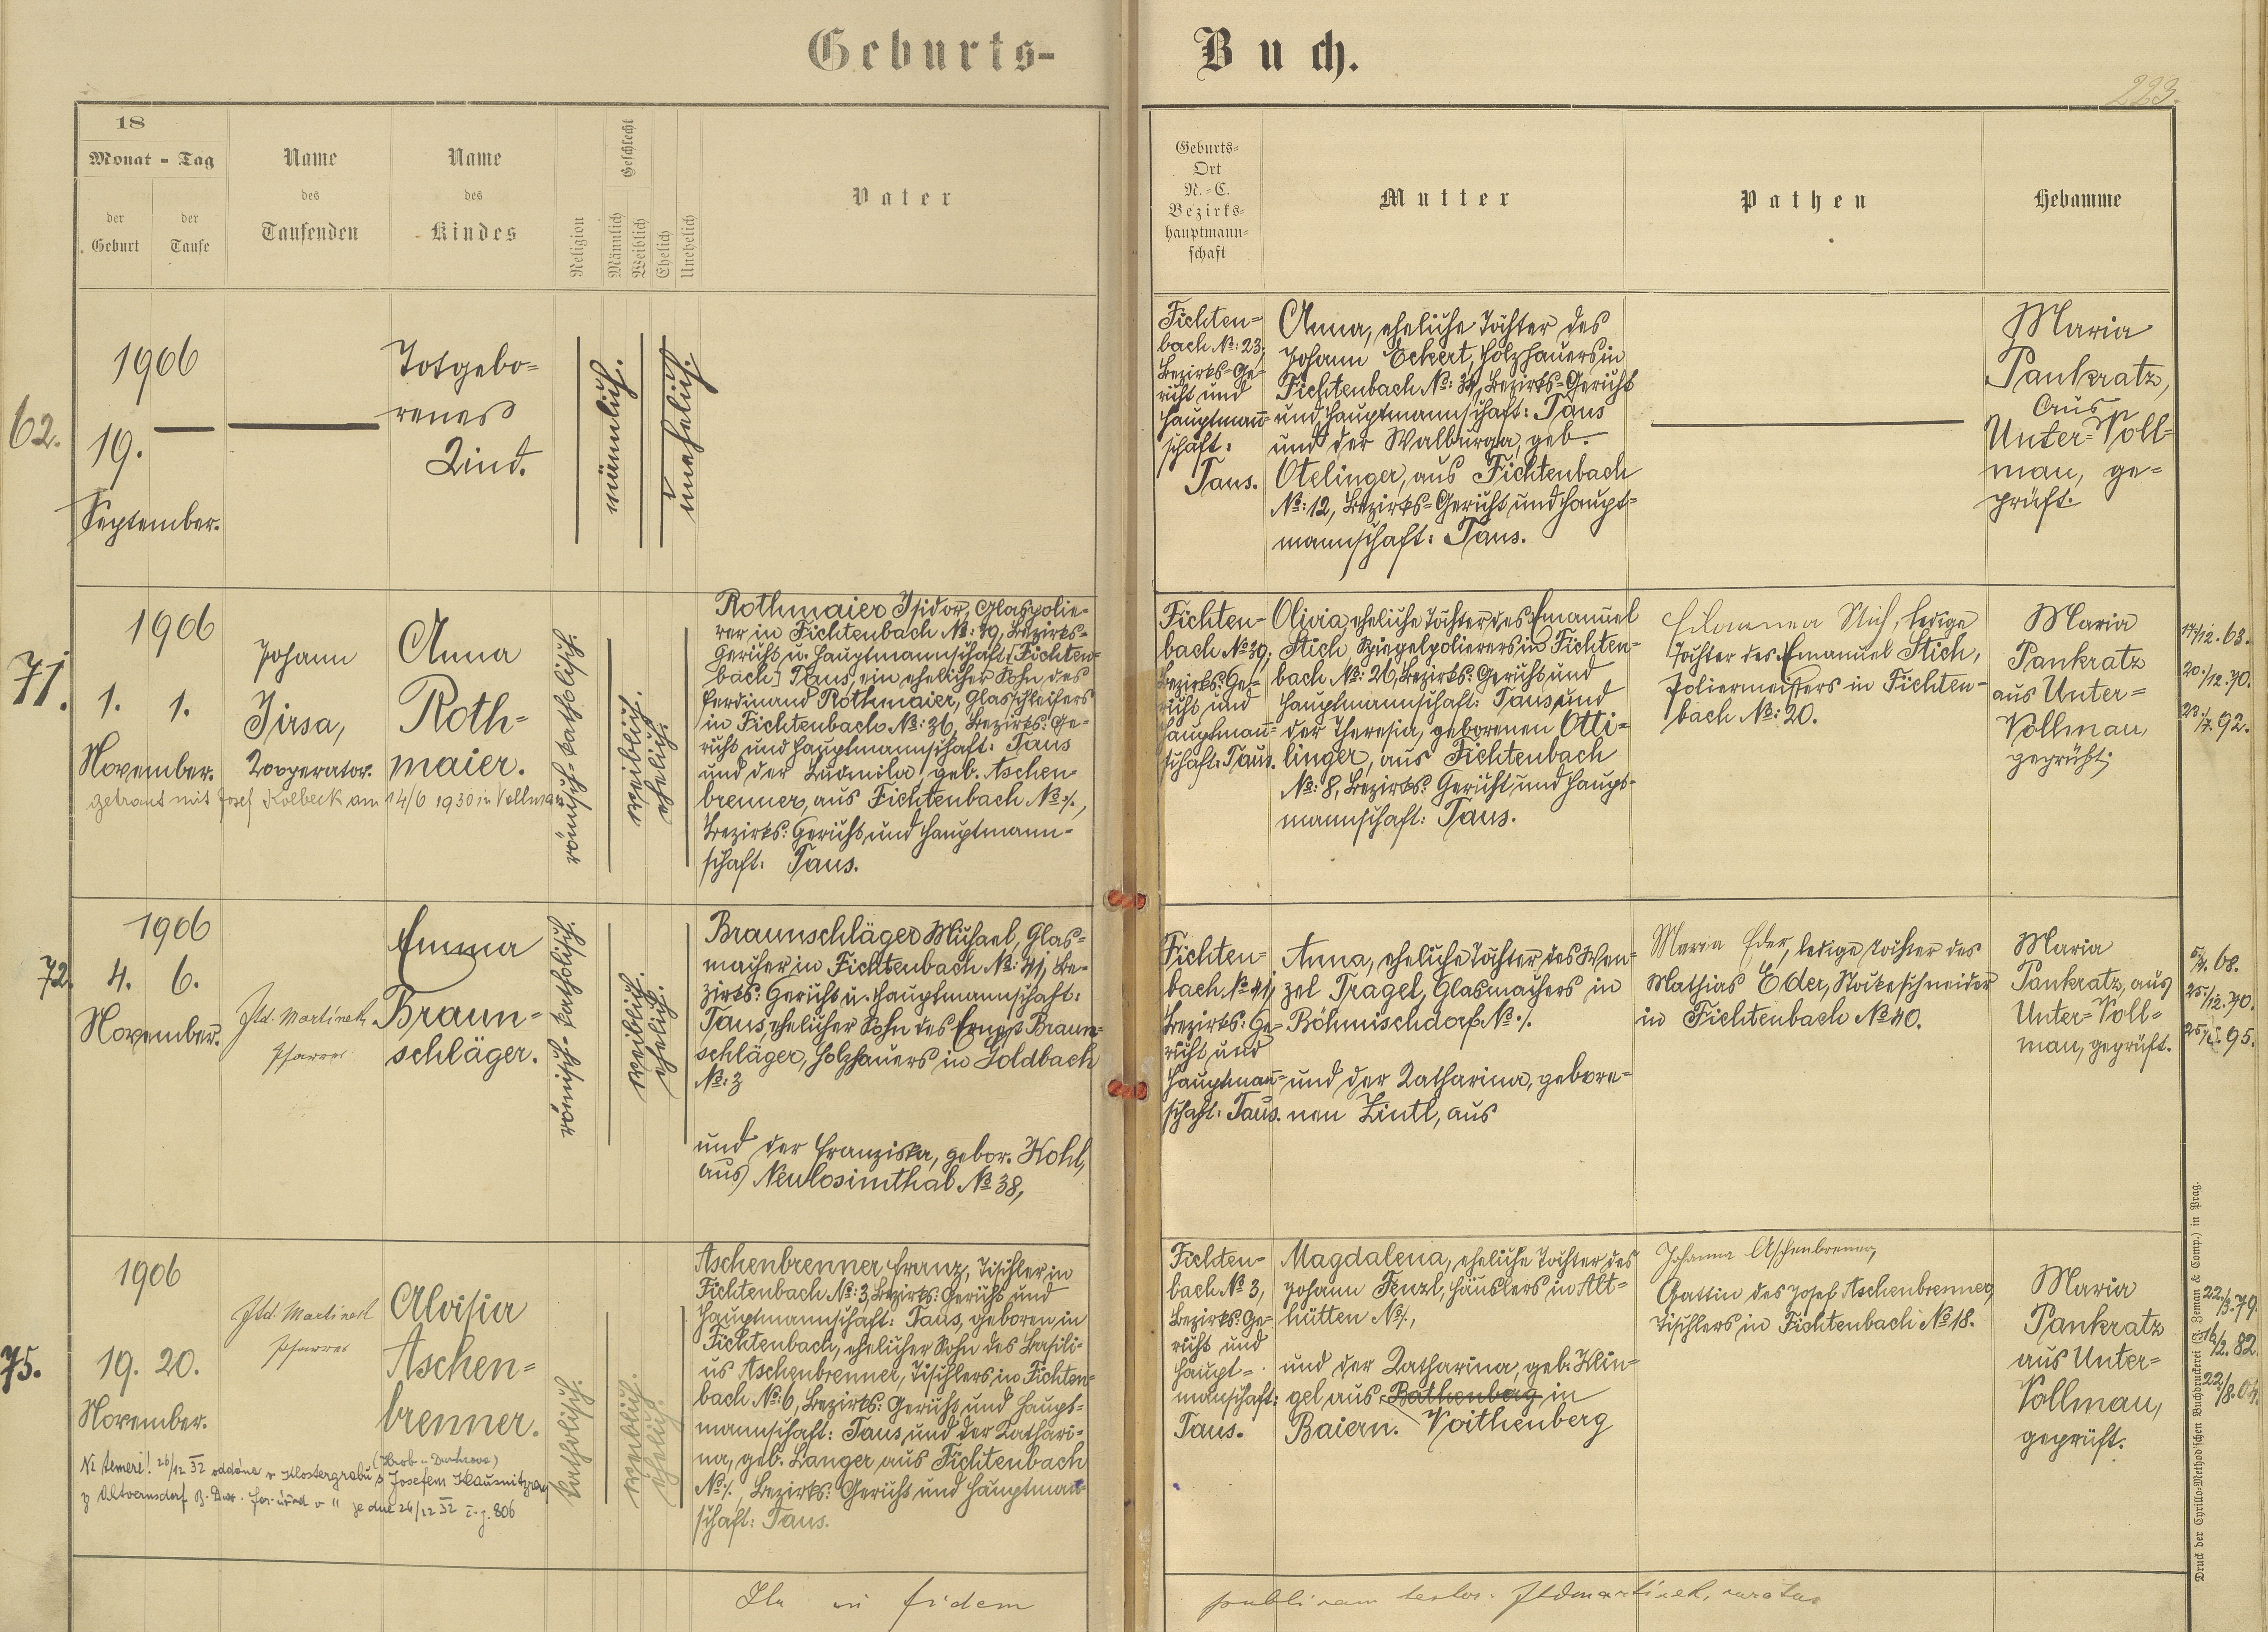 Geburts-Buch.
223.
18
Monat - Tag
der Geburt
der Taufe
Name des Taufenden
Name des Kindes
Religion
Geschlecht
Männlich
Weiblich
Ehelich
Unehelich
Vater
Geburts-
Ort
N.-C.
Bezirks-
hauptmann-
schaft
Mutter
Pathen
Hebamme
62.
1906
19.
September.
Totgebo-
renes
Kind.
männlich.
unehelich.
Fichten-
bach №: 23,
Bezirks-Ge-
richt und
Hauptman̄-
schaft:
Taus.
Anna, eheliche Tochter des
Johann Eckert, Holzhauers in
Fichtenbach №: 34, Bezirks-Gericht
und Hauptmannschaft: Taus
und der Walburga, geb.
Otelinger, aus Fichtenbach
№: 12, Bezirks-Gericht und Haupt-
mannschaft: Taus.
Maria
Pankratz,
aus
Unter-Voll-
mau, ge-
prüft.
71.
1906
1. 1.
November.
Johann
Jirsa,
Kooperator.
Anna
Roth-
maier.
getraut mit Josef Kolbeck am 14/6 1930 in Vollmau
römisch-katholisch.
weiblich.
ehelich.
Rothmaier Isidor, Glaspolie-
rer in Fichtenbach №: 39, Bezirks-
Gericht u. Hauptmannschaft [Fichten-
bach] Taus, ein ehelicher Sohn des
Ferdinand Rothmaier, Glasschleifers
in Fichtenbach №: 36, Bezirks: Ge-
richt und Hauptmannschaft: Taus
und der Ludmila geb. Aschen-
brenner, aus Fichtenbach №: /.,
Bezirks: Gericht und Hauptmann-
schaft: Taus.
Fichten-
bach № 39,
Bezirks: Ge-
richt und
Hauptman̄-
schaft: Taus.
Olivia, eheliche Tochter des Emanuel
Stich, Spiegelpolierers in Fichten-
bach №: 20, Bezirks: Gericht und
Hauptmannschaft: Taus, und
der Theresia, geborenen Otti-
linger, aus Fichtenbach
№: 8, Bezirks: Gericht und Haupt-
mannschaft: Taus.
Stich, ledige
Tochter des Emanuel Stich,
Poliermeisters in Fichten-
bach №: 20.
Maria
Pankratz
aus Unter-
Vollmau,
geprüft;
17/12. 63.
20./12. 70.
23./7. 92.
72.
1906
4. 6.
November.
Jld. Martínek
Pfarrer
Emma
Braun-
schläger.
römisch-katholisch.
weiblich.
ehelich.
Braunschläger Michael, Glas-
macher in Fichtenbach №: 41, Be-
zirks: Gericht u. Hauptmannschaft:
Taus, ehelicher Sohn des Ernest Braun-
schläger, Holzhauers in Goldbach
№: 3
und der Franziska, gebor. Kohl,
aus Neulosimthal № 38,
Fichten-
bach № 41,
Bezirks: Ge-
richt und
Hauptman̄-
schaft: Taus.
Anna, eheliche Tochter des Wen-
zel Tragel, Glasmachers in
Böhmischdorf № /.
und der Katharina, gebore-
nen Zintl, aus
Maria Eder, ledige Tochter des
Mathias Eder, Stockschneider
in Fichtenbach № 40.
Maria
Pankratz, aus
Unter-Voll-
mau, geprüft.
68.
25/12. 70.
95.
75.
1906
19. 20.
November.
Jld. Martínek
Pfarrer
Aloisia
Aschen-
brenner.
Ne temere! 26/12 32 oddána v Klostergrabu s Josefem Klausnitzrem
z Altvernsdorf je dne 26/12 32 č.j. 806
katholisch.
weiblich.
ehelich.
Aschenbrenner Franz, Tischler in
Fichtenbach №: 3, Bezirks: Gericht und
Hauptmannschaft: Taus, geboren in
Fichtenbach, ehelicher Sohn des Basili-
us Aschenbrenner, Tischlers in Fichten-
bach №: 6, Bezirks: Gericht und Haupt-
mannschaft: Taus, und der Kathari-
na, geb. Langer aus Fichtenbach
№: /., Bezirks: Gericht und Hauptman̄-
schaft: Taus.
Fichten-
bach № 3,
Bezirks: Ge-
richt und
Haupt-
manschaft:
Taus.
Magdalena, eheliche Tochter des
Johann Fenzl, Häuslers in Alt-
hütten № /.,
und der Katharina, geb. Klin-
gel aus Bathenberg in
Baiern. Voithenberg
Johanna Aschenbrenner,
Gattin des Josef Aschenbrenner,
Tischlers in Fichtenbach № 18.
Maria
Pankratz
aus Unter-
Vollmau,
geprüft.
22./3. 79.
16/2. 82.
22/8.
in fidem
publicam testor. Jldmartínek, curatus
Druck der Cyrillo-Method'schen Buchdruckerei (J. Zeman & Comp.) in Prag.